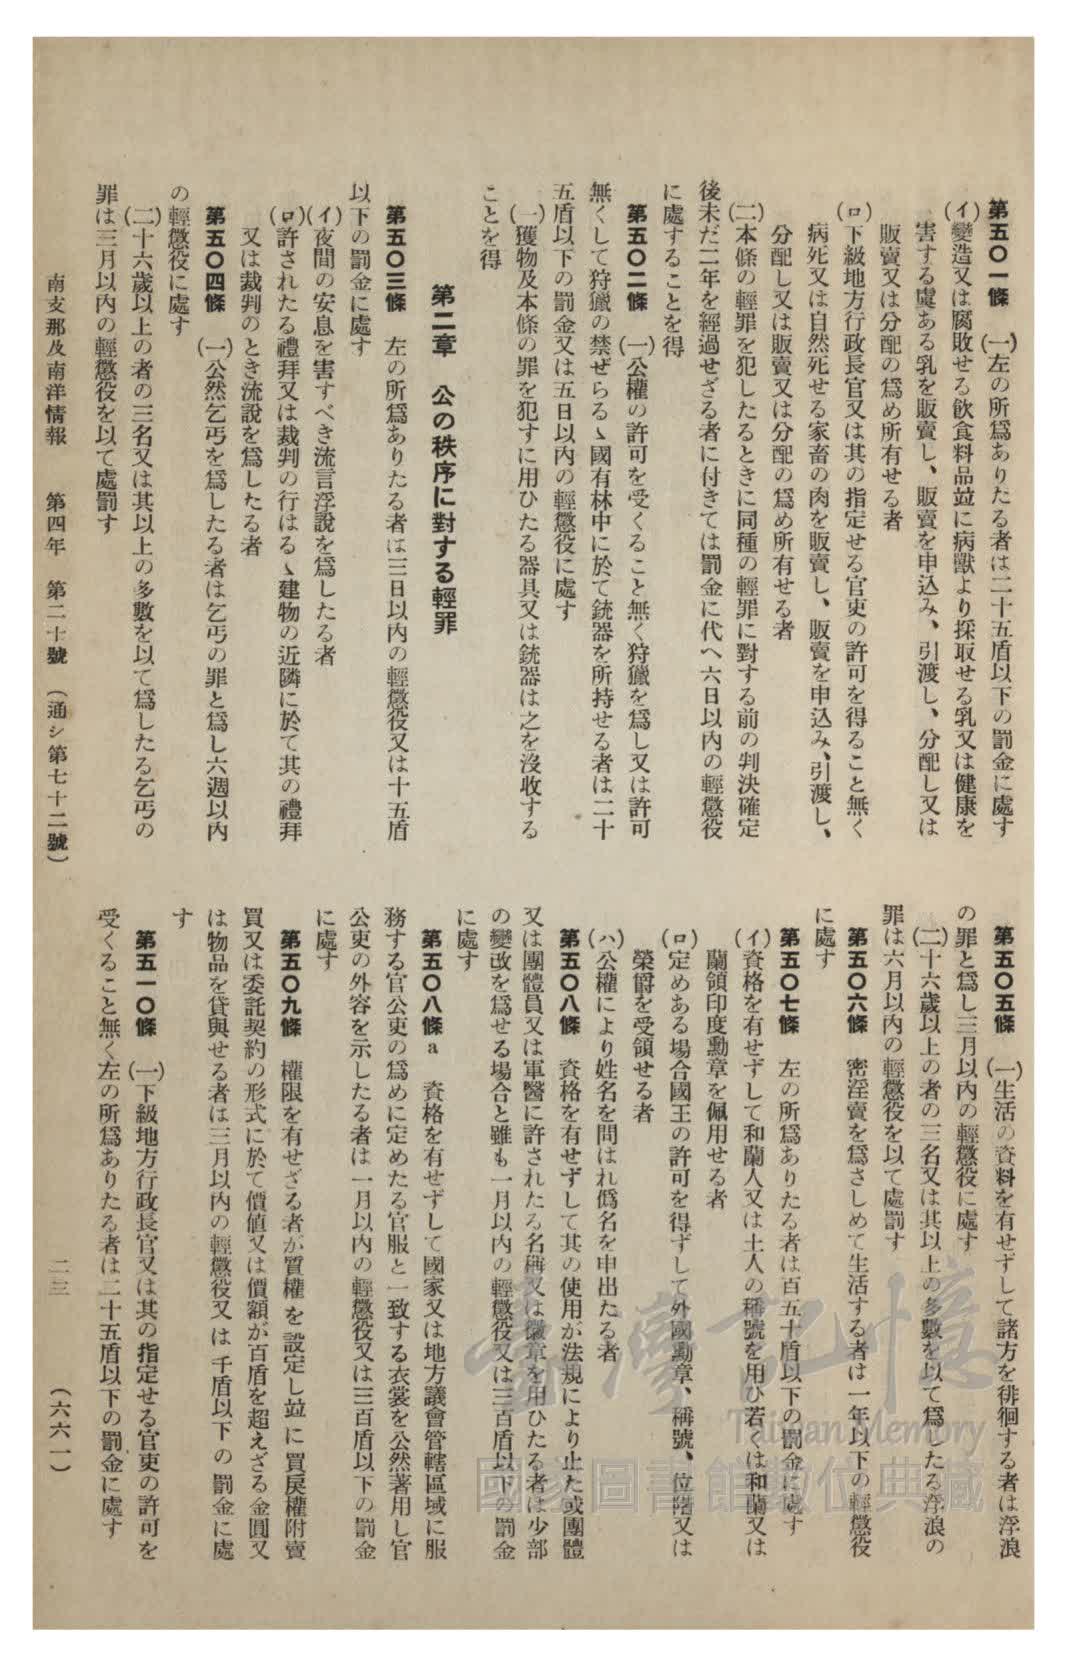 第五〇一條　(一)左の所爲ありたる者は二十五盾以下の罰金に處す
(イ)變造又は腐敗せる飮食料品竝に病獸より採取せる乳又は健康を
害する虞ある乳を販賣し、販賣を申込み、引渡し、分配し又は
販賣又は分配の爲め所有せる者
(ロ)下級地方行政長官又は其の指定せる官吏の許可を得ること無く
病死又は自然死せる家畜の肉を販賣し、販賣を申込み、引渡し、
分配し又は販賣又は分配の爲め所有せる者
(二)本條の輕罪を犯したるときに同種の輕罪に對する前の判決確定
後未だ二年を經過せざる者に付きては罰金に代へ六日以內の輕懲役
に處することを得
第五〇二條　(一)公權の許可を受くること無く狩獵を爲し又は許可
無くして狩獵の禁ぜらるゝ國有林中に於て銃器を所持せる者は二十
五盾以下の罰金又は五日以內の輕懲役に處す
(一)獲物及本條の罪を犯すに用ひたる器具又は銃器は之を沒收する
ことを得
第二章　公の秩序に對する輕罪
第五〇三條　左の所爲ありたる者は三日以內の輕懲役又は十五盾
以下の罰金に處す
(イ)夜間の安息を害すべき流言浮說を爲したる者
(ロ)許されたる禮拜又は裁判の行はるゝ建物の近隣に於て其の禮拜
又は裁判のとき流說を爲したる者
第五〇四條　(一)公然乞丐を爲したる者は乞丐の罪と爲し六週以內
の輕懲役に處す
(二)十六歲以上の者の三名又は其以上の多數を以て爲したる乞丐の
罪は三月以內の輕懲役を以て處罰す
第五〇五條　(一)生活の資料を有せずして諸方を徘徊する者は浮浪
の罪と爲し三月以內の輕懲役に處す
(二)十六歲以上の者の三名又は其以上の多數を以て爲したる浮浪の
罪は六月以內の輕懲役を以て處罰す
第五〇六條　密淫賣を爲さしめて生活する者は一年以下の輕懲役
に處す
第五〇七條　左の所爲ありたる者は百五十盾以下の罰金に處す
(イ)資格を有せずして和蘭人又は土人の稱號を用ひ若くは和蘭又は
蘭領印度勳章を佩用せる者
(ロ)定めある場合國王の許可を得ずして外國勳章、稱號、位階又は
榮爵を受領せる者
(ハ)公權により姓名を問はれ僞名を申出たる者
第五〇八條　資格を有せずして其の使用が法規により止た或團體
又は團體員又は軍醫に許されたる名稱又は徽章を用ひたる者は少部
の變改を爲せる場合と雖も一月以內の輕懲役又は三百盾以下の罰金
に處す
第五〇八條a　資格を有せずして國家又は地方議會管轄區域に服
務する官公吏の爲めに定めたる官服と一致する衣裳を公然著用し官
公吏の外容を示したる者は一月以內の輕懲役又は三百盾以下の罰金
に處す
第五〇九條　權限を有せざる者が質權を設定し竝に買戾權附賣
買又は委託契約の形式に於て價値又は價額が百盾を超えざる金圓又
は物品を貸與せる者は三月以內の輕懲役又は千盾以下の罰金に處
す
第五一〇條　(一)下級地方行政長官又は其の指定せる官吏の許可を
受くること無く左の所爲ありたる者は二十五盾以下の罰金に處す
南支那及南洋情報　第四年　第二十號　(通シ第七十二號)
二三　(六六一)
臺灣記憶
Taiwan Memory
國家圖書館數位典藏